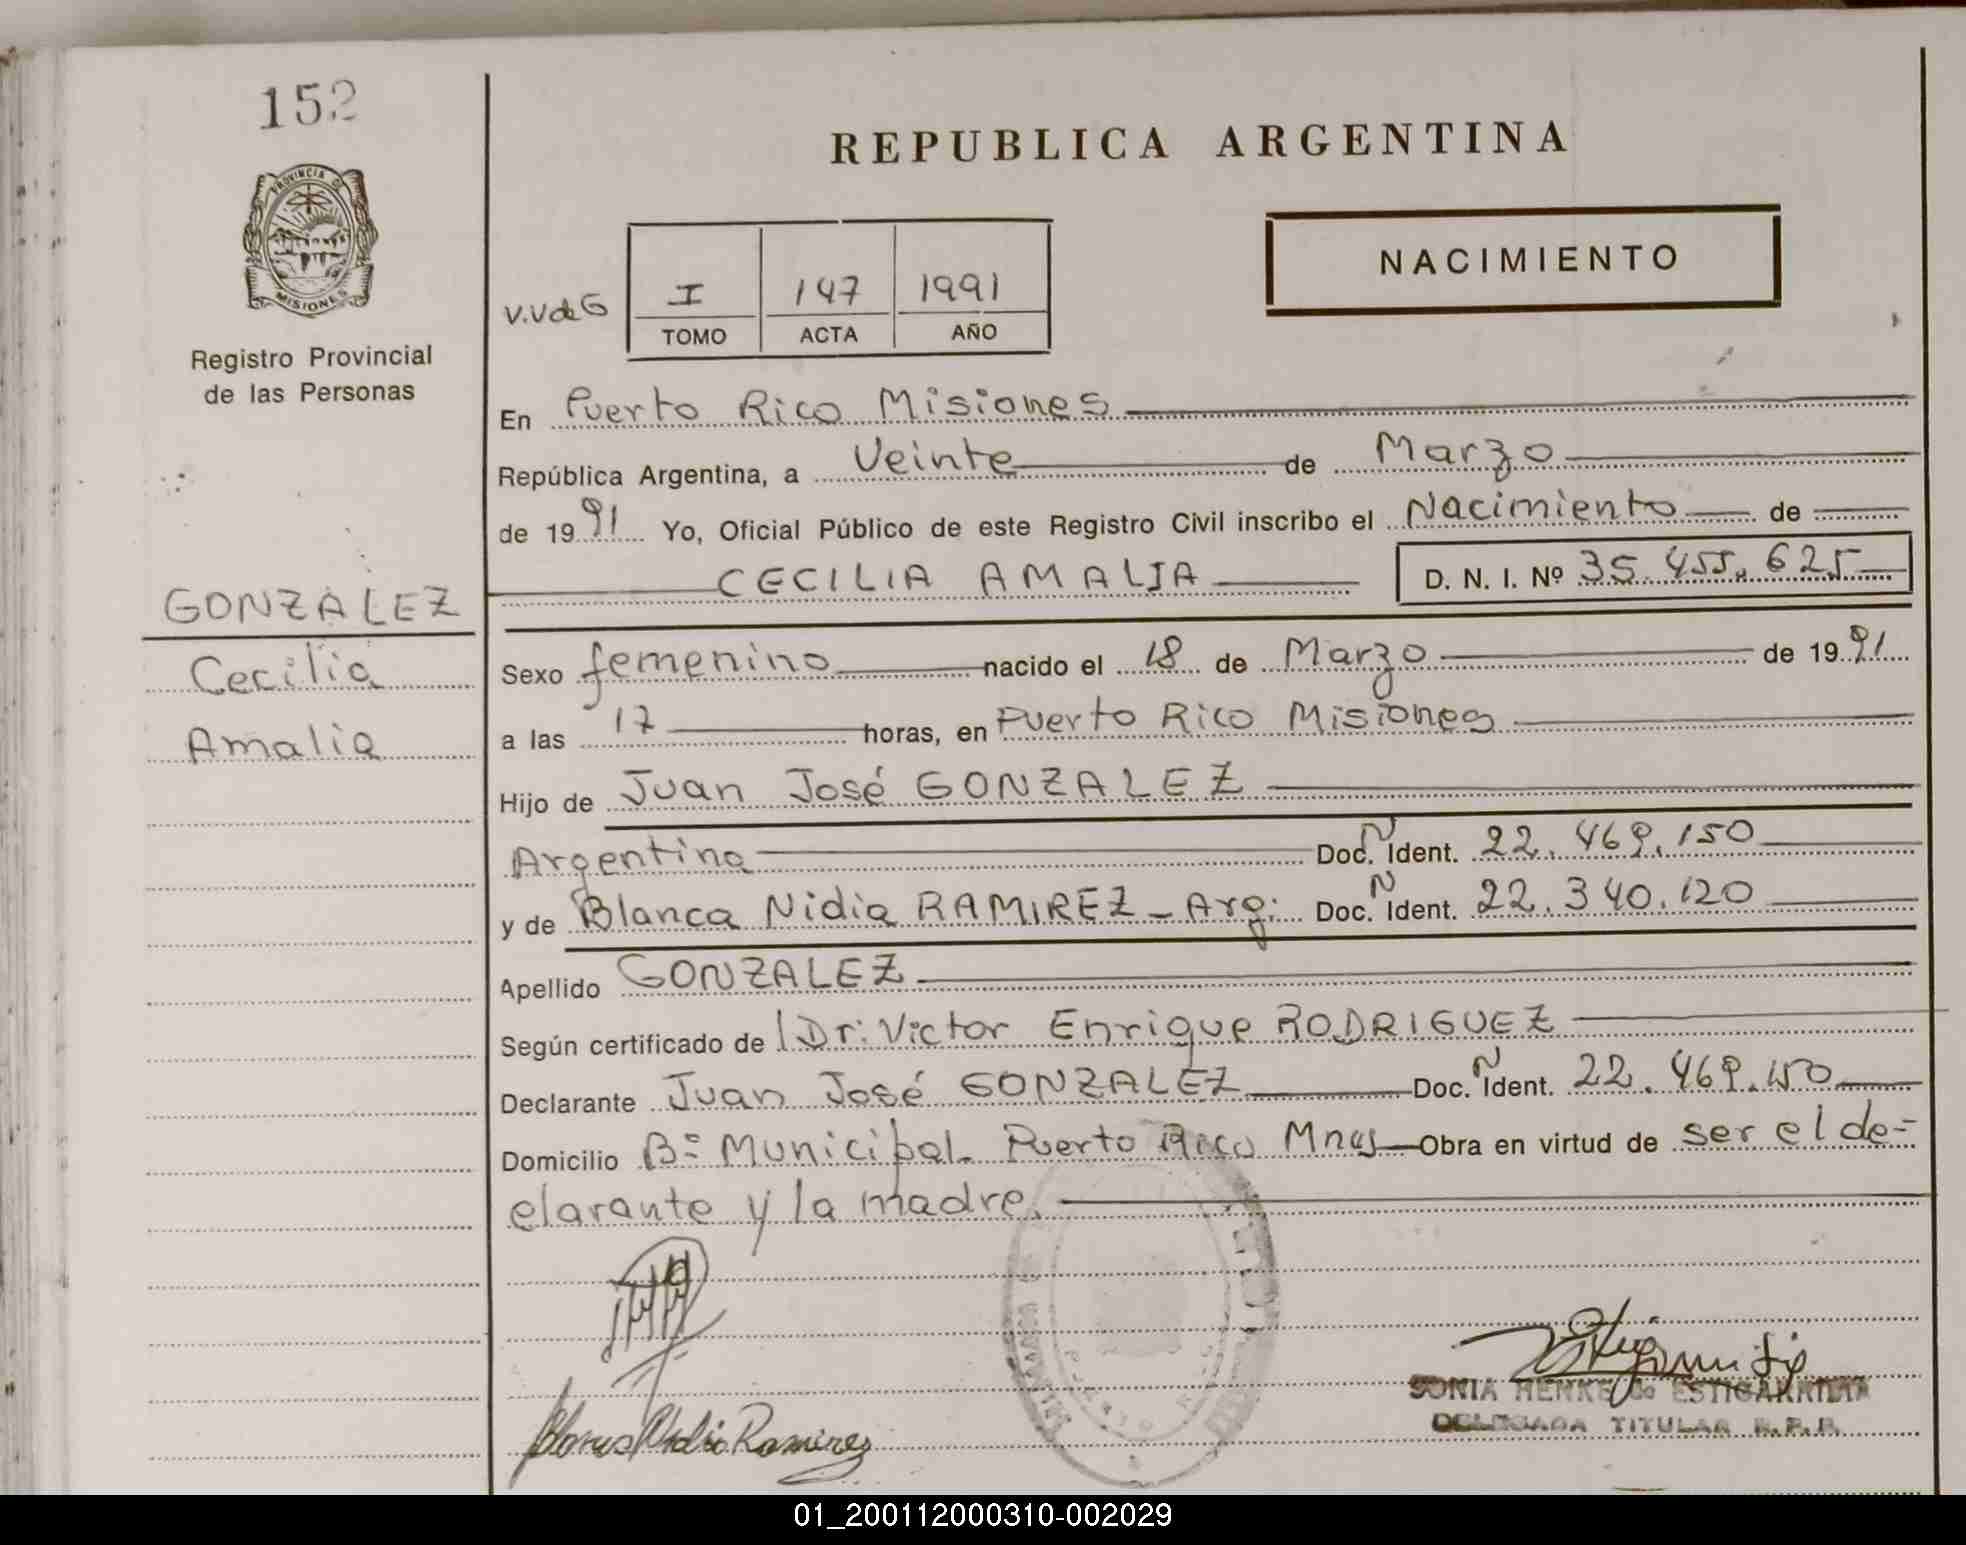 152
PROVINCIA DE
MISIONES
Registro Provincial
de las Personas
REPUBLICA ARGENTINA
NACIMIENTO
V.V de G
I 147 1991
TOMO ACTA AÑO
En Puerto Rico Misiones
República Argentina, a Veinte de Marzo
de 1991 Yo, Oficial Público de este Registro Civil inscribo el Nacimiento de
CECILIA AMALIA D. N. I. Nº 35.455.625
GONZALEZ
Cecilia
Amalia
Sexo femenino nacido el 18 de Marzo de 1991
a las 17 horas, en Puerto Rico Misiones
Hijo de Juan José GONZALEZ
Argentino Doc. N Ident. 22.469.150
y de Blanca Nidia RAMIREZ - Arg: Doc. N Ident. 22.340.120
Apellido GONZALEZ
Según certificado de Dr: Victor Enrique RODRIGUEZ
Declarante Juan José GONZALEZ Doc. N Ident. 22.469.150
Domicilio Bº Municipal. Puerto Rico Mnes Obra en virtud de ser el de-
clarante y la madre.
Ramirez
SONIA HENKE de ESTIGARRIBIA
DELEGADA TITULAR R.P.P.
01_200112000310-002029